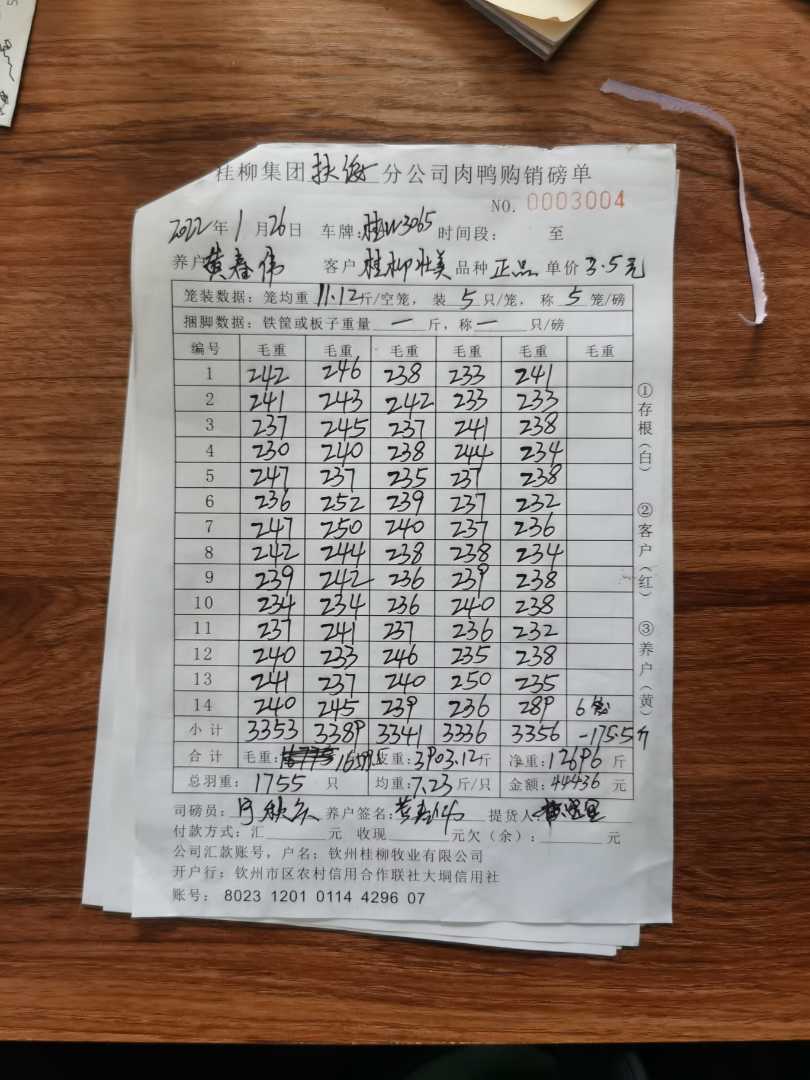 桂柳集团扶海分公司肉鸭购销磅单
NO. 0003004
2022年1月26日 车牌:桂N3065 时间段: 至
养户黄春伟 客户桂柳壮美 品种正品 单价3.5元
笼装数据:笼均重11.12斤/空笼,装5只/笼,称5笼/磅
捆脚数据:铁筐或板子重量一斤,称一只/磅
编号 毛重 毛重 毛重 毛重 毛重 毛重
1 242 246 238 233 241
2 241 243 242 233 233
3 237 245 237 241 238
4 230 240 238 244 234
5 247 237 235 237 238
6 236 252 239 237 232
7 247 250 240 237 236
8 242 244 238 238 234
9 239 242 236 239 238
10 234 234 236 240 238
11 237 241 237 236 232
12 240 233 246 235 238
13 241 237 240 250 235
14 240 245 239 236 289 6笼
小计 3353 3389 3341 3336 3356 -175.5斤
合计 毛重:16599.5 皮重:3903.12斤 净重:12696斤
总羽重:1755只 均重:7.23斤/只 金额:44436元
司磅员: 养户签名:黄春伟 提货人:
付款方式:汇 元 收现 元欠(余): 元
公司汇款账号,户名:钦州桂柳牧业有限公司
开户行:钦州市区农村信用合作联社大垌信用社
账号: 8023 1201 0114 4296 07
①存根(白)
②客户(红)
③养户(黄)